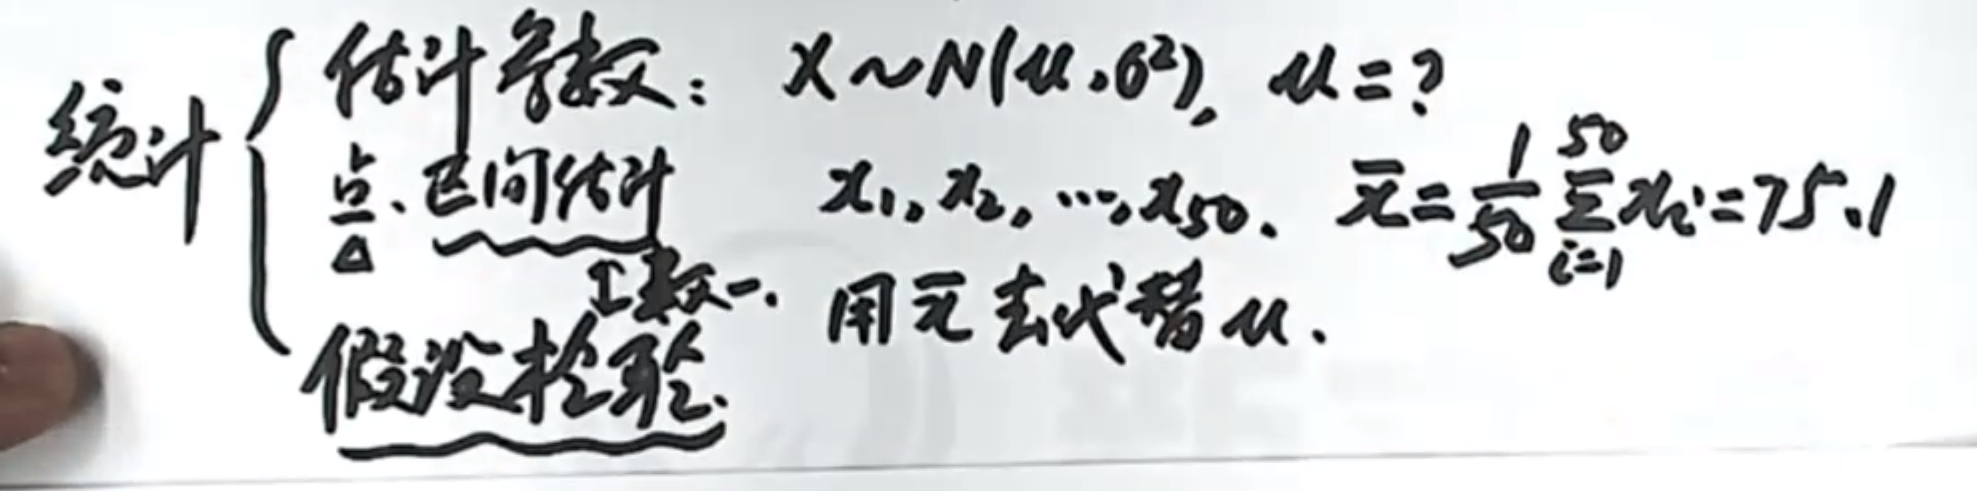 统计
估计参数: X~N(μ,σ²), μ=?
点、区间估计 x₁, x₂, …, x₅₀. x̄=1/50 Σᵢ₌₁⁵⁰ xᵢ=75.1
数一. 用x̄去代替μ.
假设检验.